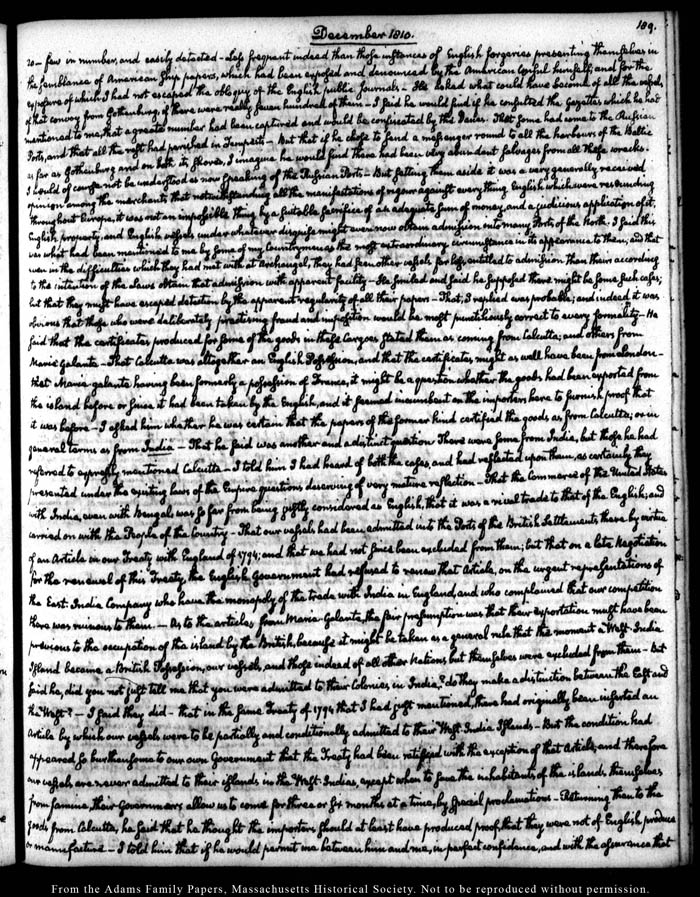 189.
December 1810.
so few in number, and easily detected – Less frequent indeed than those instances of English forgeries presenting themselves in
the semblance of American Ship papers, which had been exposed and denounced by the American Consul himself, and for the
exposure of which I had not escaped the obloquy of the English public Journals – He asked what could have become of all the vessels,
of that convoy from Gothenburg, if there were really seven hundred of them – I said he would find if he consulted the Gazettes which he had
mentioned to me, that a great number had been captured and would be confiscated by the Danes. That some had come to the Prussian
Ports, and that all the rest had perished in Tempests – But that if he chose to send a messenger round to all the harbours of the Baltic
as far as Gothenburg and on both its shores, I imagine he would find there had been very abundant salvages from all these wrecks.
I would of course not be understood as now speaking of the Russian Ports – But setting them aside it was a very generally received
opinion among the merchants that notwithstanding all the manifestations of rigour against every thing English which were resounding
throughout Europe, it was not an impossible thing by a suitable sacrifice of an adequate sum of money, and a judicious application of it,
English property, and English vessels under whatever disguise might even now obtain admission into many Ports of the North. I said this
was what had been mentioned to me by some of my Countrymen as the most extraordinary circumstance in its appearance to them, and that
even in the difficulties which they had met with at Archangel, they had seen other vessels far less entitled to admission than theirs according
to the intention of the laws obtain that admission with apparent facility – He smiled and said he supposed there might be some such cases;
but that they must have escaped detection by the apparent regularity of all their papers – That, I replied was probable; and indeed it was
obvious that those who were deliberately practising fraud and imposition would be most punctiliously correct to every formality – He
said that the certificates produced for some of the goods in these Cargoes stated them as coming from Calcutta; and others from
Marie Galante – That Calcutta was altogether an English Possession, and that the certificates might as well have been from London –
that Marie-galante having been formerly a possession of France, it might be a question whether the goods had been exported from
the island before or since it had been taken by the English, and it seemed incumbent on the importers here to furnish proof that
it was before – I asked him whether he was certain that the papers of the former kind certified the goods as from Calcutta; or in
general terms as from India – That he said was another and a distinct question There were some from India, but those he had
referred to expressly mentioned Calcutta – I told him I had heard of both the cases, and had reflected upon them, as certainly they
presented under the existing laws of the Empire questions deserving of very mature reflection – That the Commerce of the United States
with India, even with Bengal was so far from being justly considered as English, that it was a rival trade to that of the English; and
carried on with the People of the Country – That our vessels had been admitted into the Ports of the British Settlements there by virtue
of an Article in our Treaty with England of 1794; and that we had not since been excluded from them; but that on a late Negotiation
for the renewal of this Treaty, the English Government had refused to renew that Article, on the urgent representations of
the East-India Company who have the monopoly of the trade with India in England, and who complained that our competition
there was ruinous to them. – As to the articles from Marie-Galante, the fair presumption was that their exportation must have been
previous to the occupation of the island by the British, because it might be taken as a general rule that the moment a West-India
Island became a British Possession, our vessels, and those indeed of all other Nations but themselves were excluded from them – But
said he, did you not just tell me that you were admitted to their Colonies in India? do they make a distinction between the East and
the West? – I said they did – that in the same Treaty of 1794 that I had just mentioned, there had originally been inserted an
Article by which our vessels were to be partially and conditionally admitted to their West-India Islands – But the condition had
appeared so burthensome to our own Government that the Treaty had been ratified with the exception of that Article, and therefore
our vessels are never admitted to their islands in the West-Indies, except when to save the inhabitants of the islands themselves
from famine, their Governors allow us to come for three or six months at a time, by special proclamations – Returning then to the
goods from Calcutta, he said that he thought the importers should at least have produced proof, that they were not of English produce
or manufacture – I told him that if he would permit me between him and me, in perfect confidence, and with the assurance that
From the Adams Family Papers, Massachusetts Historical Society. Not to be reproduced without permission.